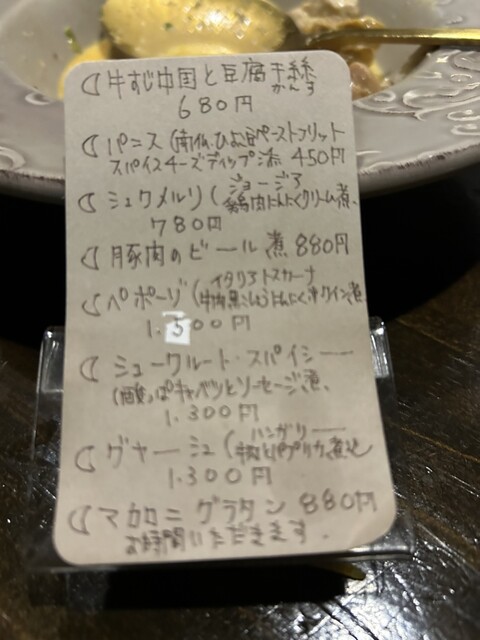 牛すじ中国と豆腐干絲
かんす
680円
パニス(南仏.ひよこ豆ペーストフリット
スパイスチーズディップ添 450円
シュクメルリ(ジョージア
鶏肉にんにくクリーム煮、
780円
豚肉のビール煮 880円
ペポーゾ(イタリアトスカーナ
牛肉黒こしょうにんにく赤ワイン煮
1.500円
シュークルート・スパイシー
(酸っぱキャベツとソーセージ煮、
1.300円
グヤーシュ(ハンガリー
牛肉とパプリカ煮込
1.300円
マカロニグラタン 880円
お時間いただきます.